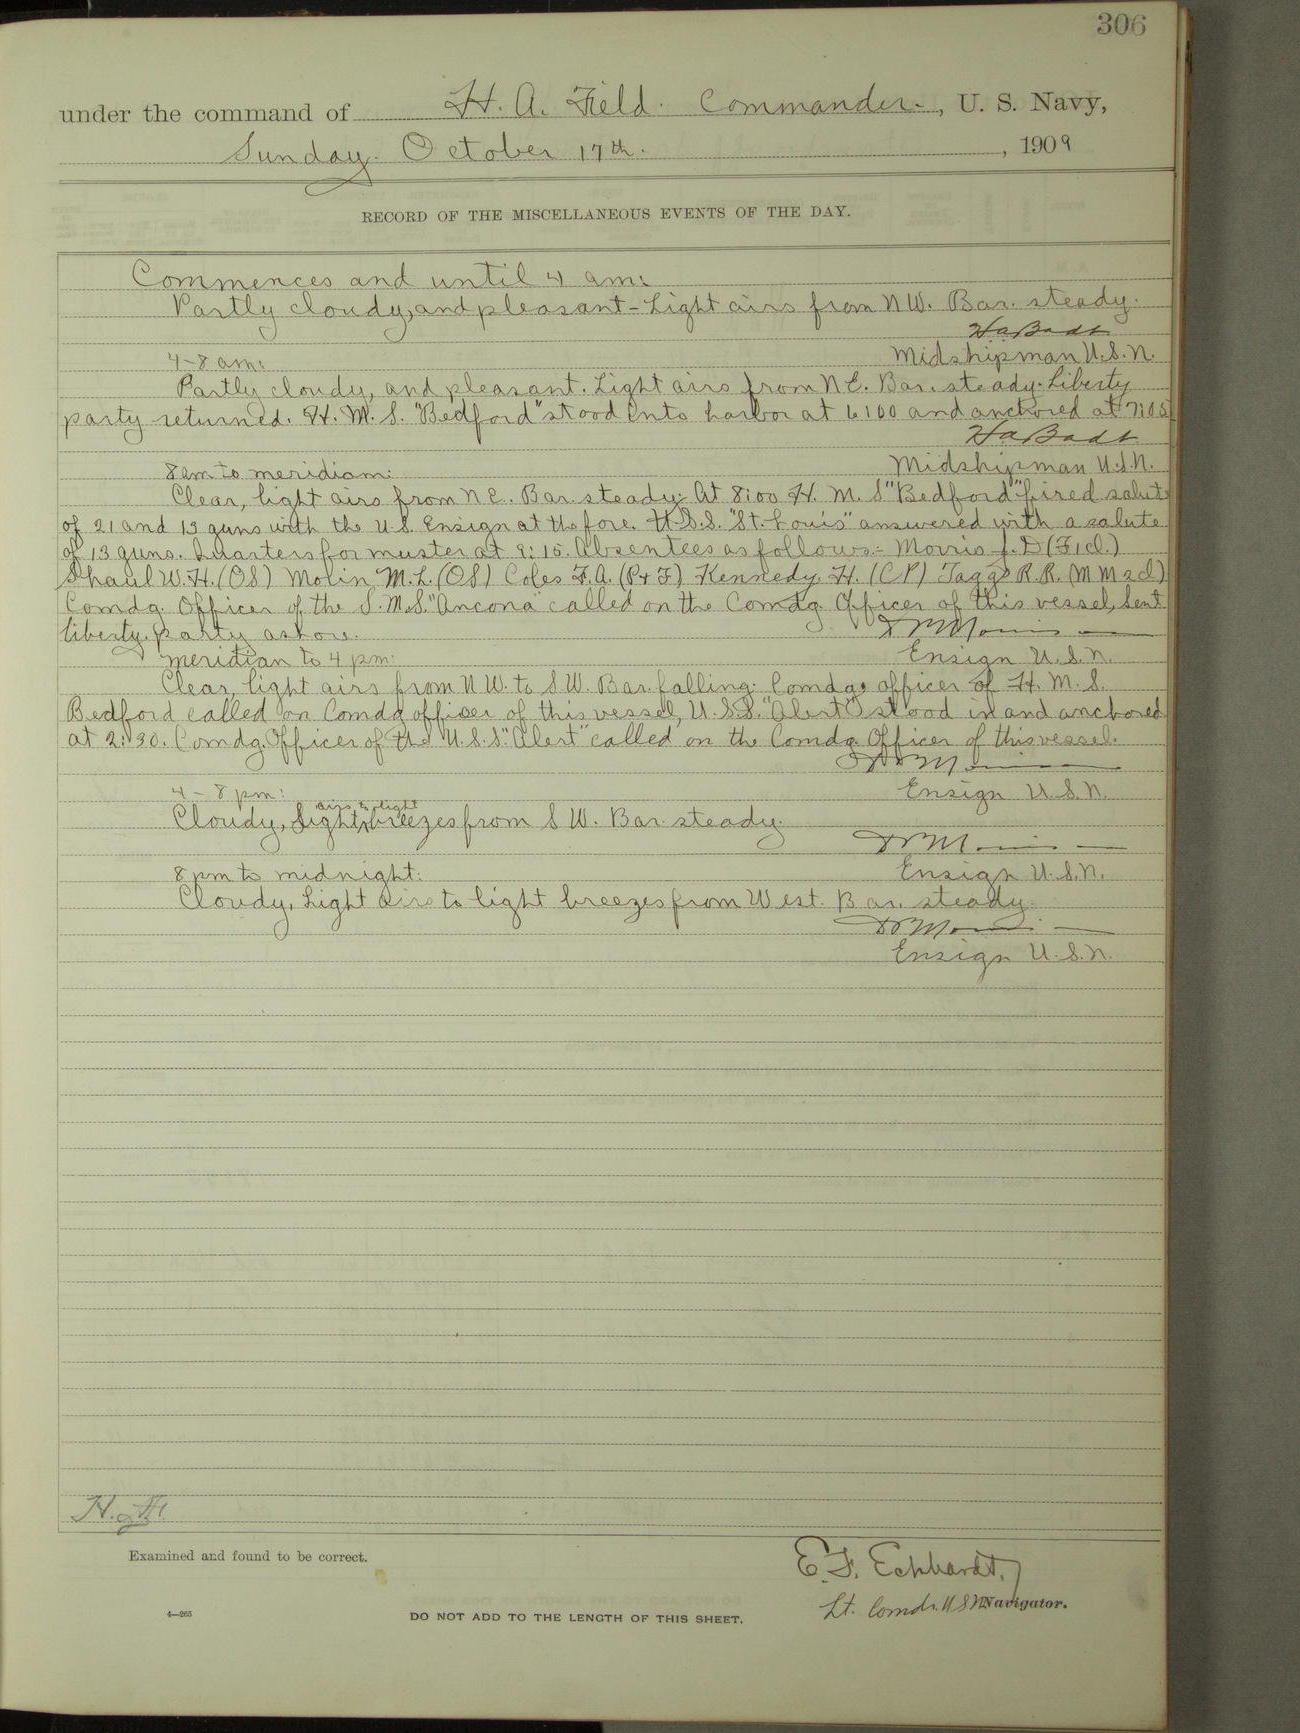 306
under the command of H. A. Field. Commander., U. S. Navy,
Sunday. October 17th., 1909
RECORD OF THE MISCELLANEOUS EVENTS OF THE DAY.
Commences and until 4 am:
Partly cloudy, and pleasant - Light airs from NW. Bar. steady.
Ha Badt
4-8 am:
Midshipman U.S.N.
Partly cloudy, and pleasant. Light airs from NE. Bar. steady. Liberty
party returned. H. M. S. "Bedford" stood into harbor at 6:00 and anchored at 7:05
Ha Badt
8 am to meridian:
Midshipman U.S.N.
Clear, light airs from NE. Bar. steady. At 8:00 H. M. S "Bedford" fired salute
of 21 and 13 guns with the U.S. Ensign at the fore. U.S.S. "St. Louis" answered with a salute
of 13 guns. Quarters for muster at 9:15. Absentees as follows:- Morris J. D (F1cl.)
Shaul W. H. (OS) Molin M. L. (OS) Coles F. A. (P+F) Kennedy H. (CP) Taggs R. R. (MM2cl)
Comdg. Officer of the S. M. S. "Ancona" called on the Comdg. Officer of this vessel, Sent
liberty party ashore.
meridian to 4 pm:
Ensign U.S.N.
Clear, light airs from NW. to SW. Bar. falling. Comdg. officer of H. M. S.
Bedford called on Comdg officer of this vessel, U.S.S. "Alert" stood in and anchored
at 2:30. Comdg. Officer of the U.S.S. "Alert" called on the Comdg. Officer of this vessel.
4-8 pm:
Ensign U.S.N.
Cloudy, Light airs to light breezes from SW. Bar. steady.
8 pm to midnight:
Ensign U.S.N.
Cloudy, Light airs to light breezes from West. Bar. steady.
Ensign U.S.N.
Examined and found to be correct.
E. F. Eckhardt,
Lt. Comdr. U S N Navigator.
4—265
DO NOT ADD TO THE LENGTH OF THIS SHEET.